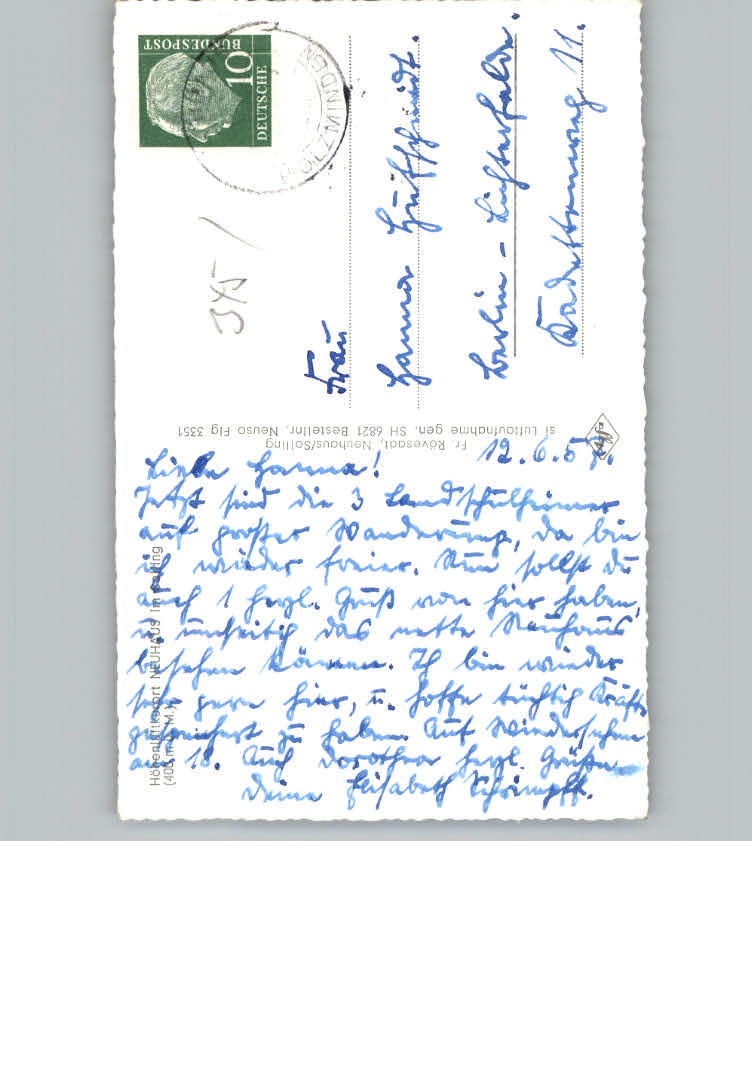 DEUTSCHE
BUNDESPOST
10
HOLZMINDEN
345
Frau
Hanna
Berlin - Lichterfelde.
Kadettenweg 11.
Fr. Rövesaat, Neuhaus/Solling
si Luftaufnahme gen. SH 6821 Bestellnr. Neuso Flg 3351
Agfa
Höhenluftkurort NEUHAUS im Solling
(400 m ü. M.)
12.6.57.
Liebe Hanna!
Jetzt sind die 3 Landschulheimer
auf großer Wanderung, da bin
ich wieder freier. Nun sollst du
auch 1 herzl. Gruß von hier haben,
u. das nette Neuhaus
besehen können. Ich bin wieder
sehr gern hier, u. hoffe tüchtig Kräfte
gespeichert zu haben. Auf Wiedersehen
am 18. Auch Dorothea herzl. Grüße
Deine Elisabeth Schrimpff.